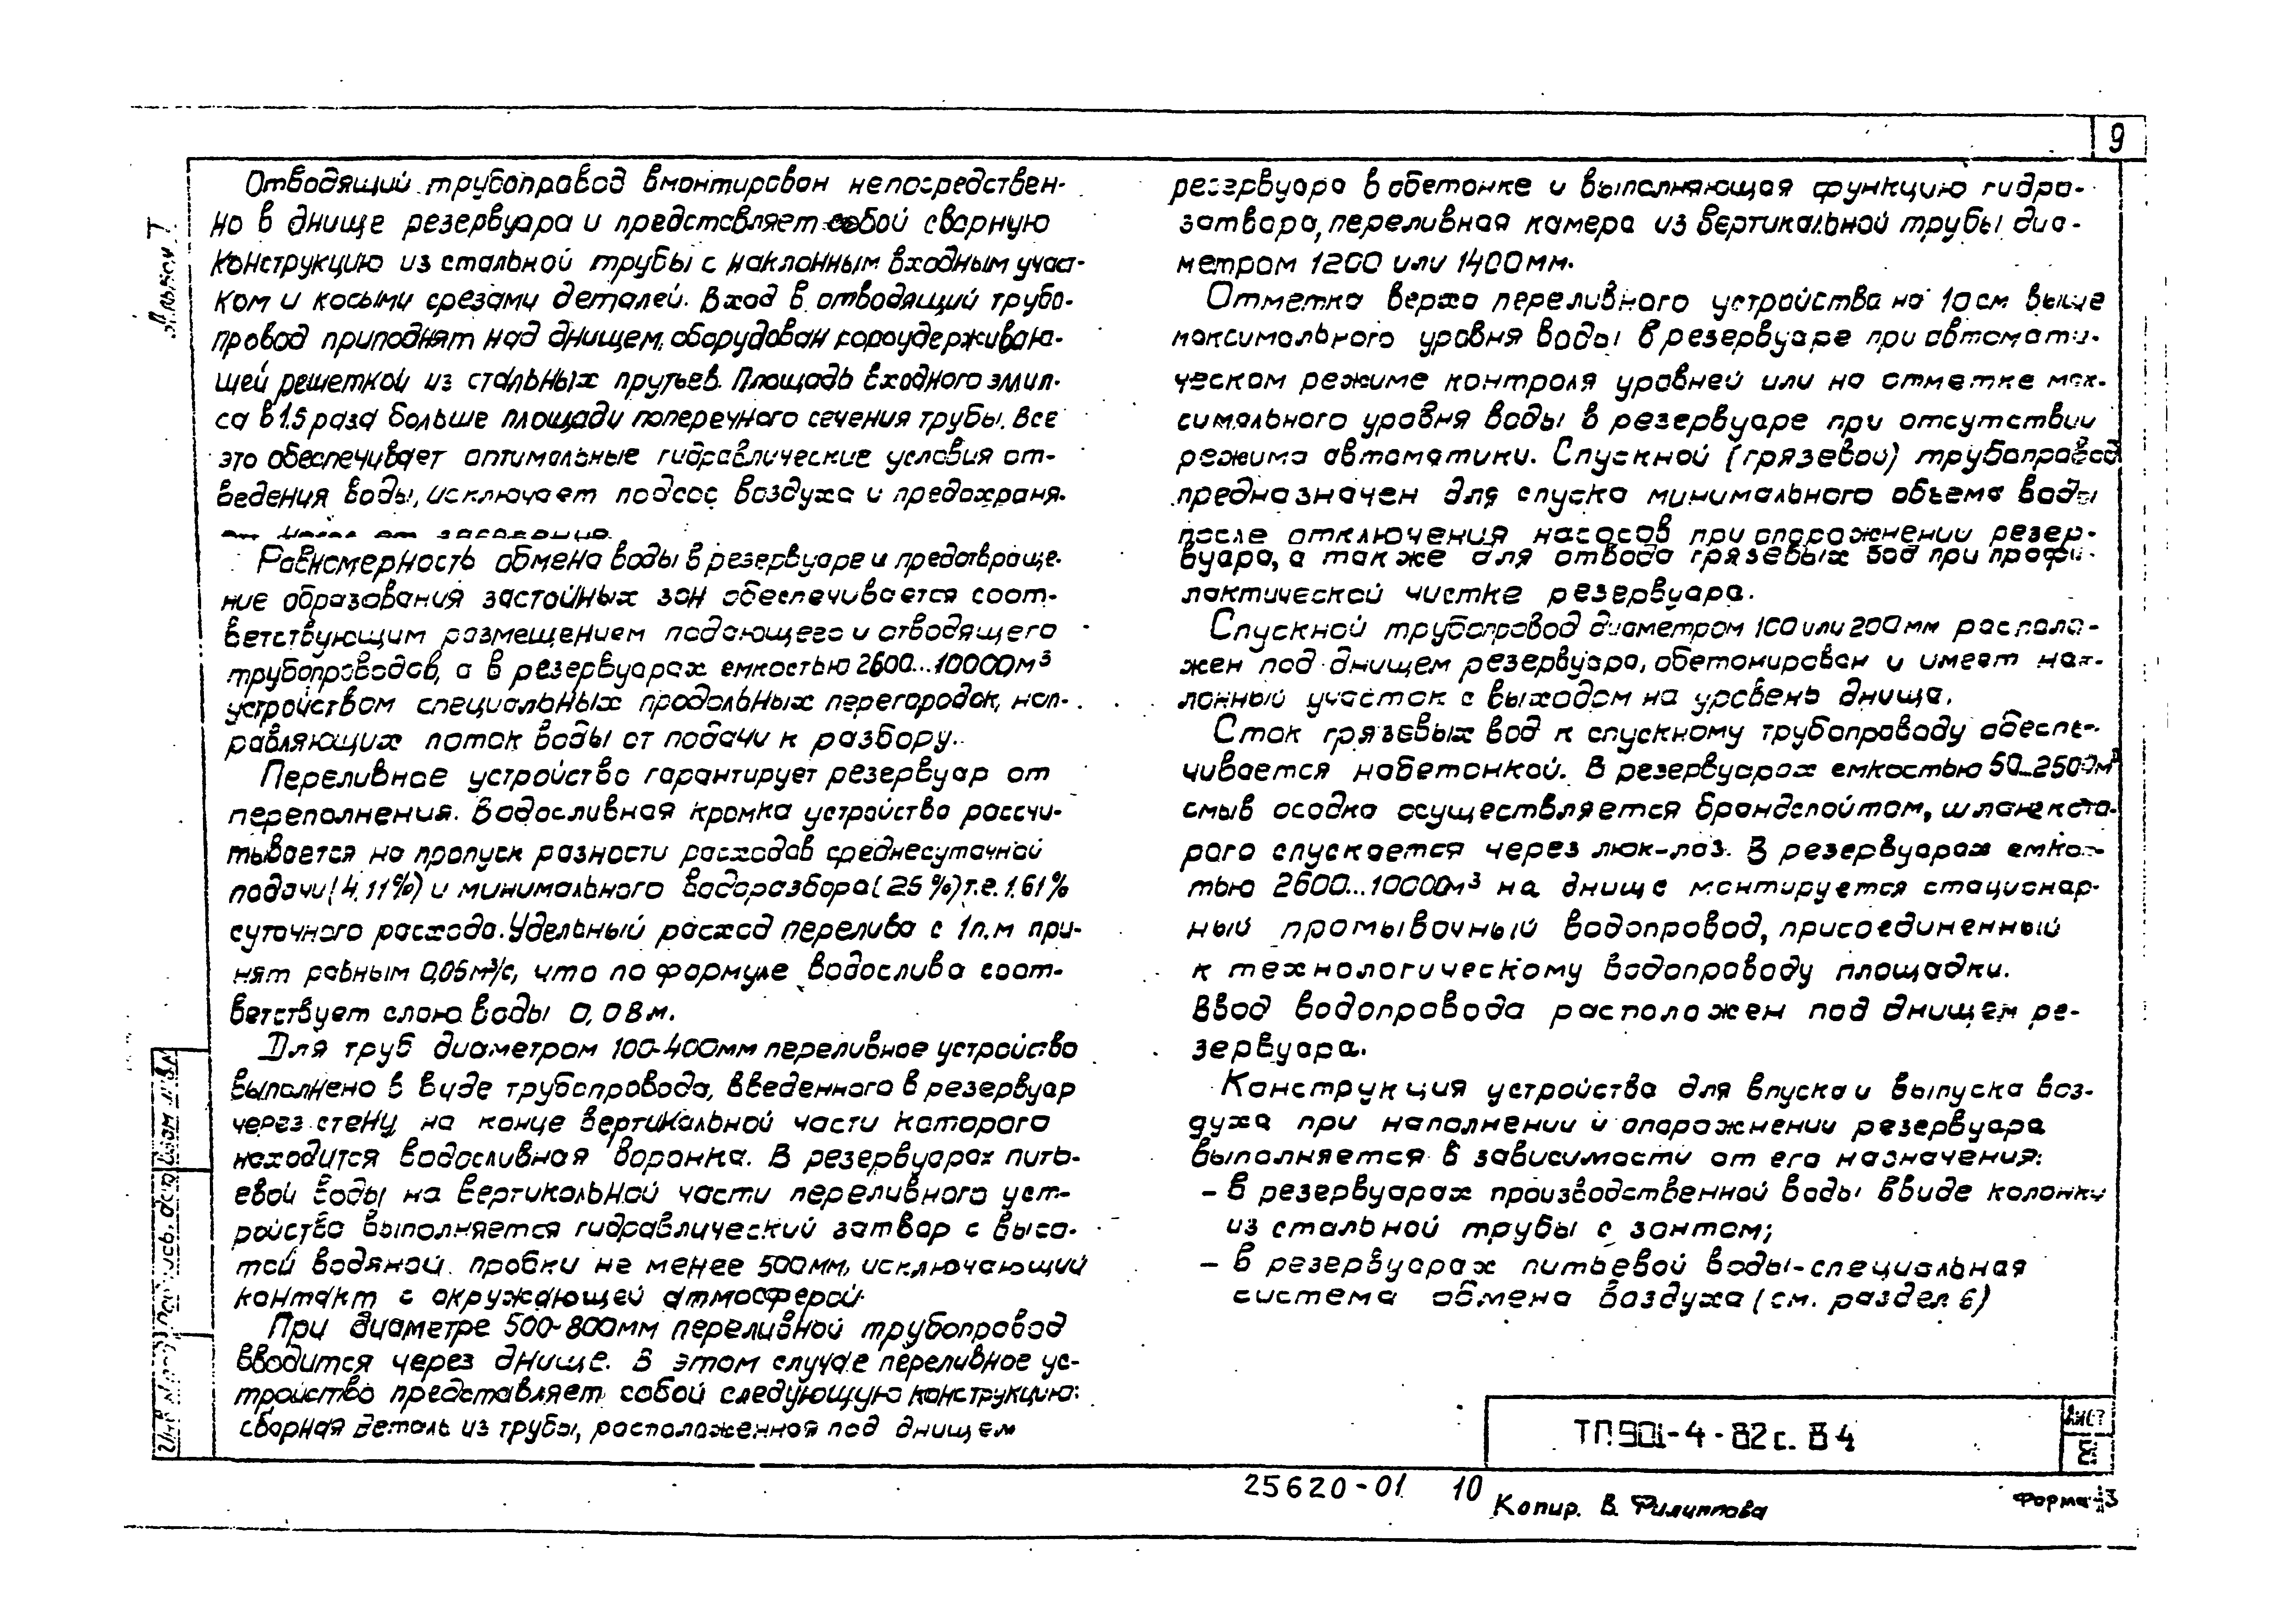 9
Отводящий трубопровод вмонтирован непосредствен-
но в днище резервуара и представляет собой сварную
конструкцию из стальной трубы с наклонным входным участ-
ком и косыми срезами деталей. Вход в отводящий трубо-
провод приподнят над днищем, оборудован сороудерживаю-
щей решеткой из стальных прутьев. Площадь входного эллип-
са в 1.5 раза больше площади поперечного сечения трубы. Все
это обеспечивает оптимальные гидравлические условия от-
ведения воды, исключает подсос воздуха и предохраня-
Равномерность обмена воды в резервуаре и предотвраще-
ние образования застойных зон обеспечивается соот-
ветствующим размещением подающего и отводящего
трубопроводов, а в резервуарах емкостью 2600...10000м³
устройством специальных продольных перегородок, нап-
равляющих поток воды от подачи к разбору.
Переливное устройство гарантирует резервуар от
переполнения. Водосливная кромка устройства рассчи-
тывается на пропуск разности расходов среднесуточной
подачи (4,11%) и минимального водоразбора (2.5%) т.е. 1.61%
суточного расхода. Удельный расход перелива с 1п.м при-
нят равным 0,05м³/с, что по формуле водослива соот-
ветствует слою воды 0,08м.
Для труб диаметром 100-400мм переливное устройство
выполнено в виде трубопровода, введенного в резервуар
через стену, на конце вертикальной части которого
находится водосливная воронка. В резервуарах пить-
евой воды на вертикальной части переливного уст-
ройства выполняется гидравлический затвор с высо-
той водяной пробки не менее 500мм, исключающий
контакт с окружающей атмосферой.
При диаметре 500-800мм переливной трубопровод
вводится через днище. В этом случае переливное ус-
тройство представляет собой следующую конструкцию:
сварная деталь из трубы, расположенная под днищем
резервуара в обетонке и выполняющая функцию гидро-
затвора, переливная камера из вертикальной трубы диа-
метром 1200 или 1400мм.
Отметка верха переливного устройства на 10см выше
максимального уровня воды в резервуаре при автомати-
ческом режиме контроля уровней или на отметке мак-
симального уровня воды в резервуаре при отсутствии
режима автоматики. Спускной (грязевой) трубопровод
предназначен для спуска минимального объема воды
после отключения насосов при опорожнении резер-
вуара, а также для отвода грязевых вод при профи-
лактической чистке резервуара.
Спускной трубопровод диаметром 100 или 200мм располо-
жен под днищем резервуара, обетонирован и имеет нак-
лонный участок с выходом на уровень днища.
Сток грязевых вод к спускному трубопроводу обеспе-
чивается набетонкой. В резервуарах емкостью 50...2500м³
смыв осадка осуществляется брандспойтом, шланг кото-
рого спускается через люк-лаз. В резервуарах емкос-
тью 2600...10000м³ на днище монтируется стационар-
ный промывочный водопровод, присоединенный
к технологическому водопроводу площадки.
Ввод водопровода расположен под днищем ре-
зервуара.
Конструкция устройства для впуска и выпуска воз-
духа при наполнении и опорожнении резервуара
выполняется в зависимости от его назначения:
- в резервуарах производственной воды ввиде колонки
из стальной трубы с зонтом;
- в резервуарах питьевой воды-специальная
система обмена воздуха (см. раздел 6)
ТП 901-4-82с. 84
Лист
25620-01 10
Копир. В. Филиппова
Формат А3